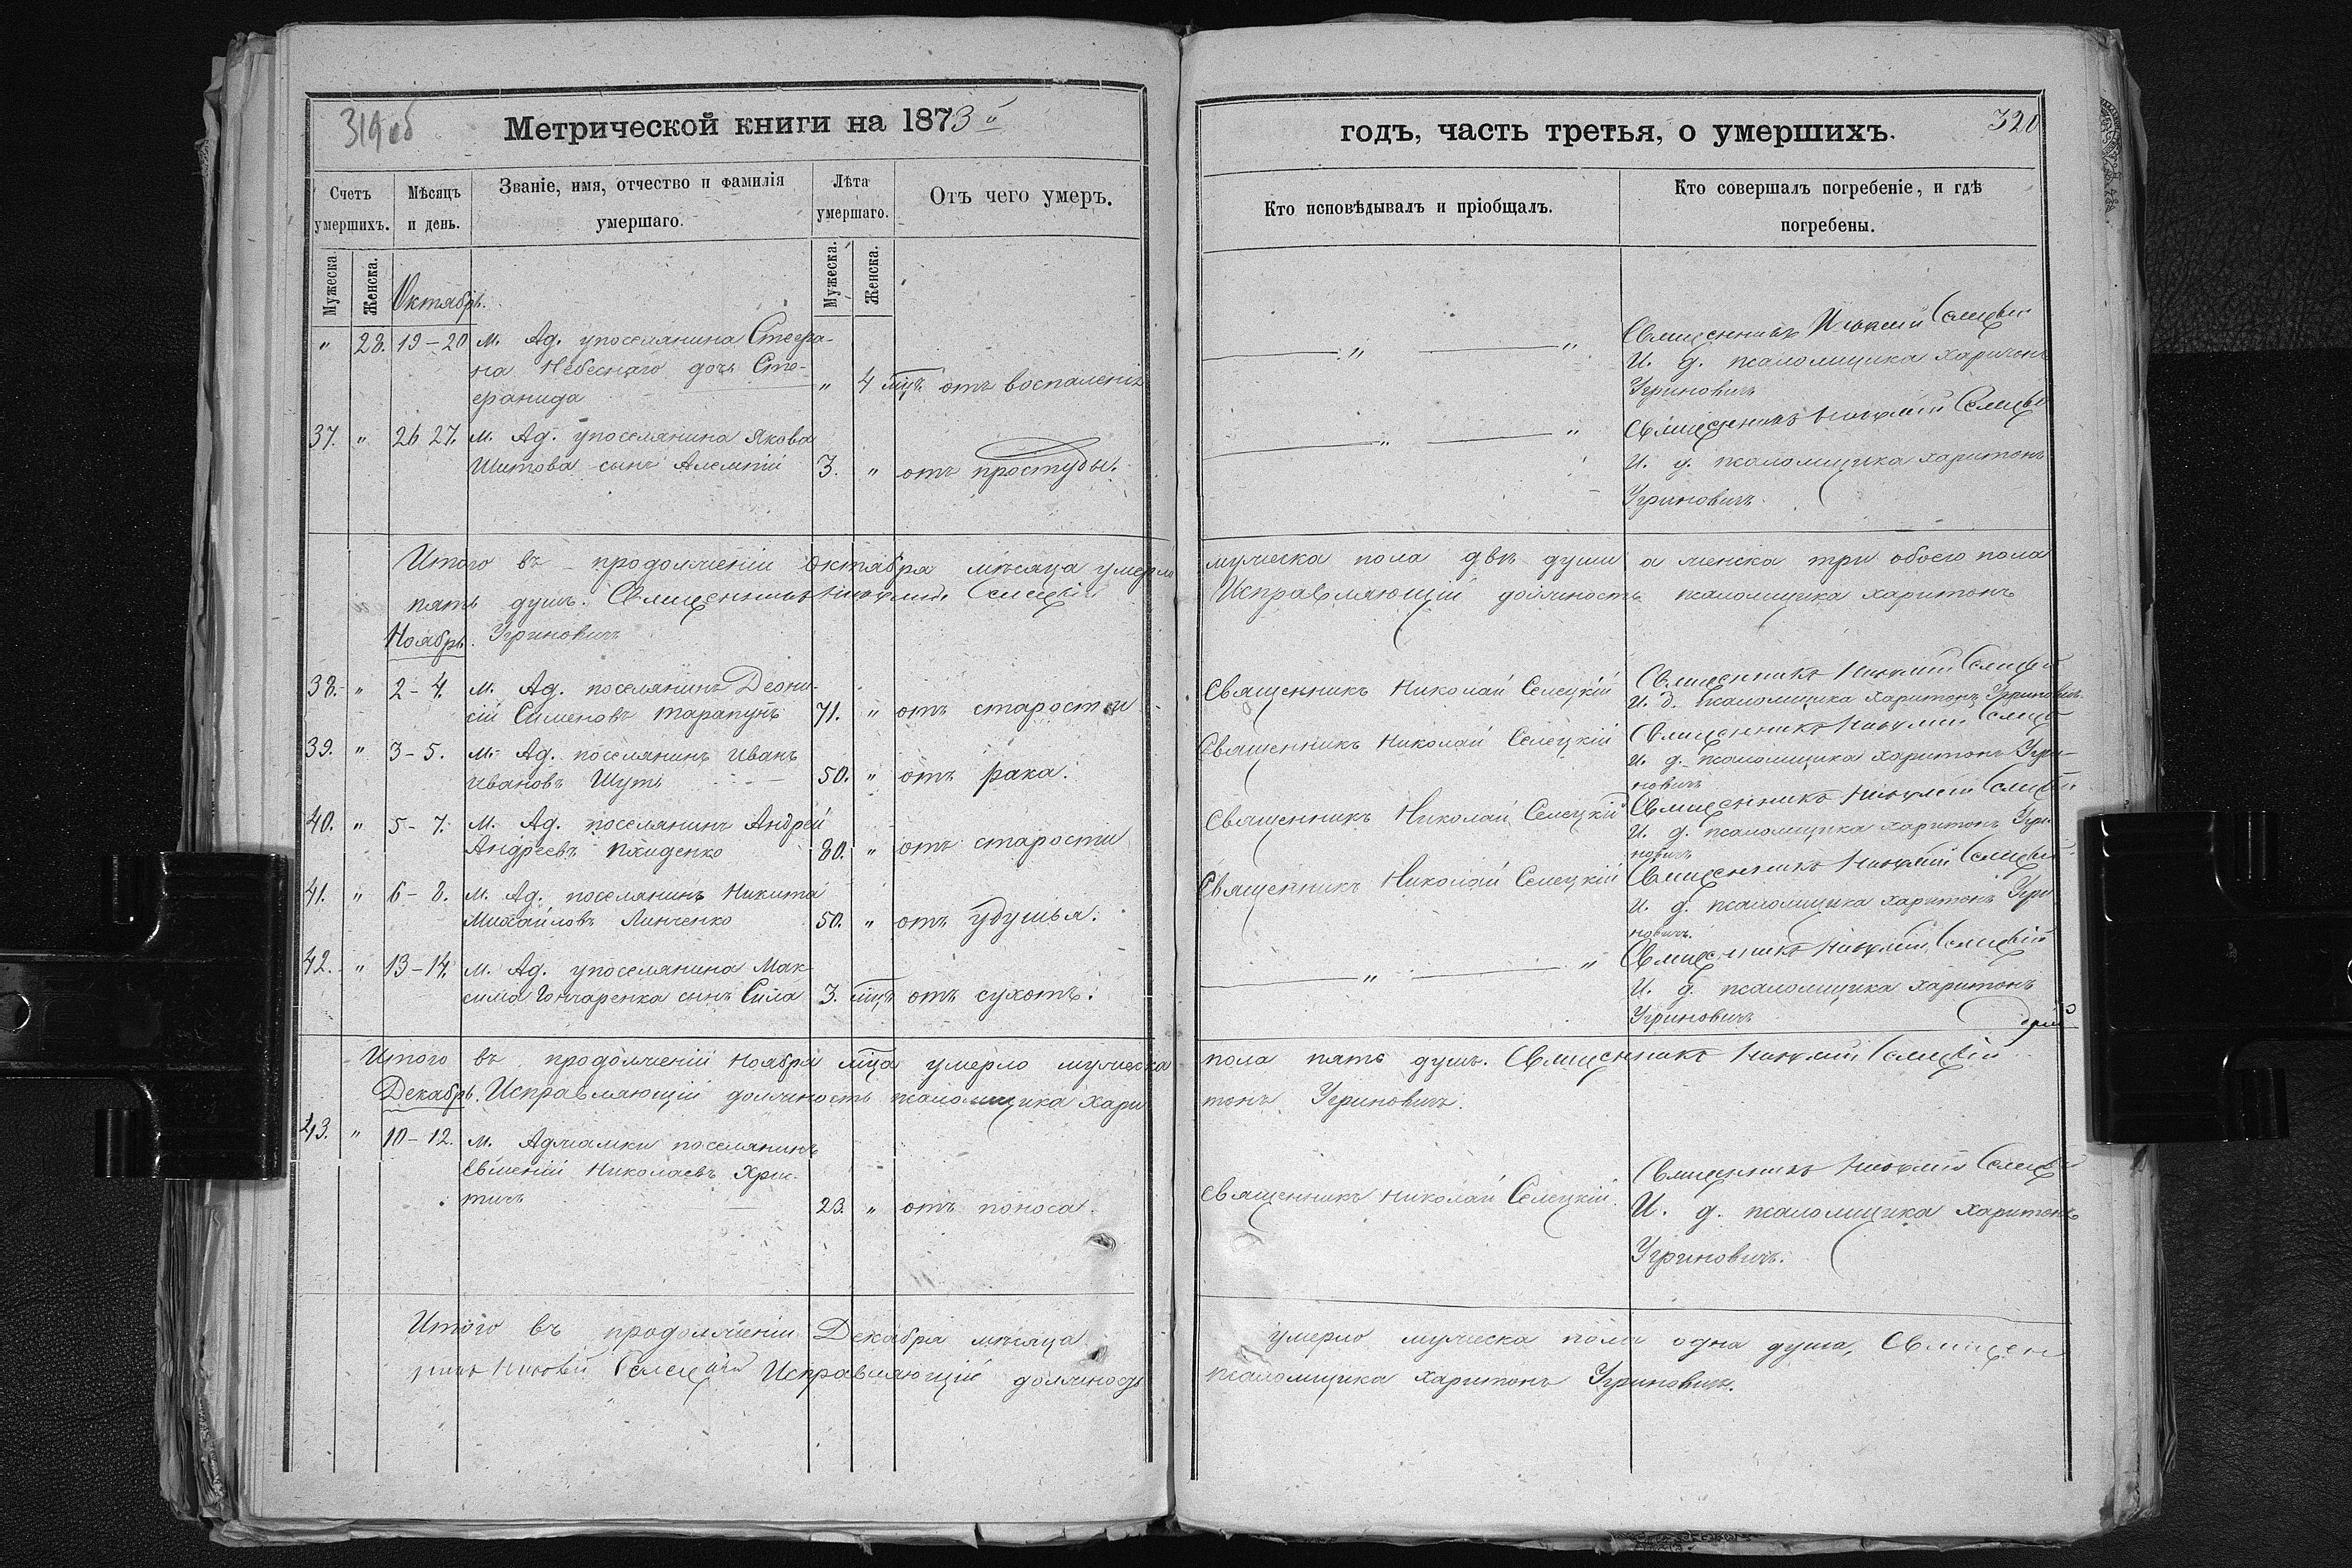 319об
Метрической книги на 1873й
Счетъ умершихъ.
Мѣсяцъ и день.
Званіе, имя, отчество и фамилія умершаго.
Лѣта умершаго.
Отъ чего умеръ.
Мужеска.
Женска.
Октябрь.
Мужеска.
Женска.
" 28. 19-20 м. Ад. упоселянина Стефа-
на Небеснаго дочь Сте-
фанида " 4 мц. отъ воспаленія
37. " 26 27. м. Ад. упоселянина Якова
Шитова сынъ Алексій 3. " отъ простуды.
Итого въ продолженіи Октября мѣсяца умерло
пять душъ. Священникъ Николай Селецкій
Ноябрь. Угриновичъ
38. " 2-4. м. Ад. поселянинъ Деони-
сій Сименовъ Тарапунъ 71. " отъ старости
39. " 3-5. м. Ад. поселянинъ Иванъ
Ивановъ Шуть 50. " отъ рака.
40. " 5-7. м. Ад. поселянинъ Андрей
Андреевъ 80. " отъ старости
41. " 6-8. м. Ад. поселянинъ Никита
Михайловъ Линченко 50. " отъ удушья.
42. " 13-14. м. Ад. упоселянина Мак-
сима Гончаренка сынъ Сила 3. мцъ отъ сухотъ.
Итого въ продолженіи Ноября мца умерло мужеска
Декабрь. Исправляющій должность псаломщика Хари
43. " 10-12. м. Аджамки поселянинъ
Евменій Николаевъ Хри-
тичъ 23. " отъ поноса.
Итого въ продолженіи Декабря мѣсяца
никъ Николай Селецкій Исправляющій должность
320
годъ, часть третья, о умершихъ.
Кто исповѣдывалъ и пріобщалъ.
Кто совершалъ погребеніе, и гдѣ погребены.
" " Священникъ Николай Селецкій
И. д. псаломщика Харитонъ
Угриновичъ
" " Священникъ Николай Селецкій
И. д. псаломщика Харитонъ
Угриновичъ
мужеска пола двѣ души а женска три обоего пола
Исправляющій должность псаломщика Харитонъ
Священникъ Николай Селецкій Священникъ Николай Селецкій
И. д. псаломщика Харитонъ Угриновичъ.
Священникъ Николай Селецкій Священникъ Николай Селецкій
И. д. псаломщика Харитонъ Угри-
новичъ
Священникъ Николай Селецкій Священникъ Николай Селецкій
И. д. псаломщика Харитонъ Угри
новичъ
Священникъ Николай Селецкій Священникъ Николай Селецкій
И. д. псаломщика Харитонъ Угри
новичъ.
" " Священникъ Николай Селецкій
И. д. псаломщика Харитонъ
Угриновичъ
пола пять душъ. Священникъ Николай Селецкій
тонъ Угриновичъ.
Священникъ Николай Селецкій. Священникъ Николай Селецкій
И. д. псаломщика Харитонъ
Угриновичъ.
умерло мужеска пола одна душа, Священ
псаломщика Харитонъ Угриновичъ.